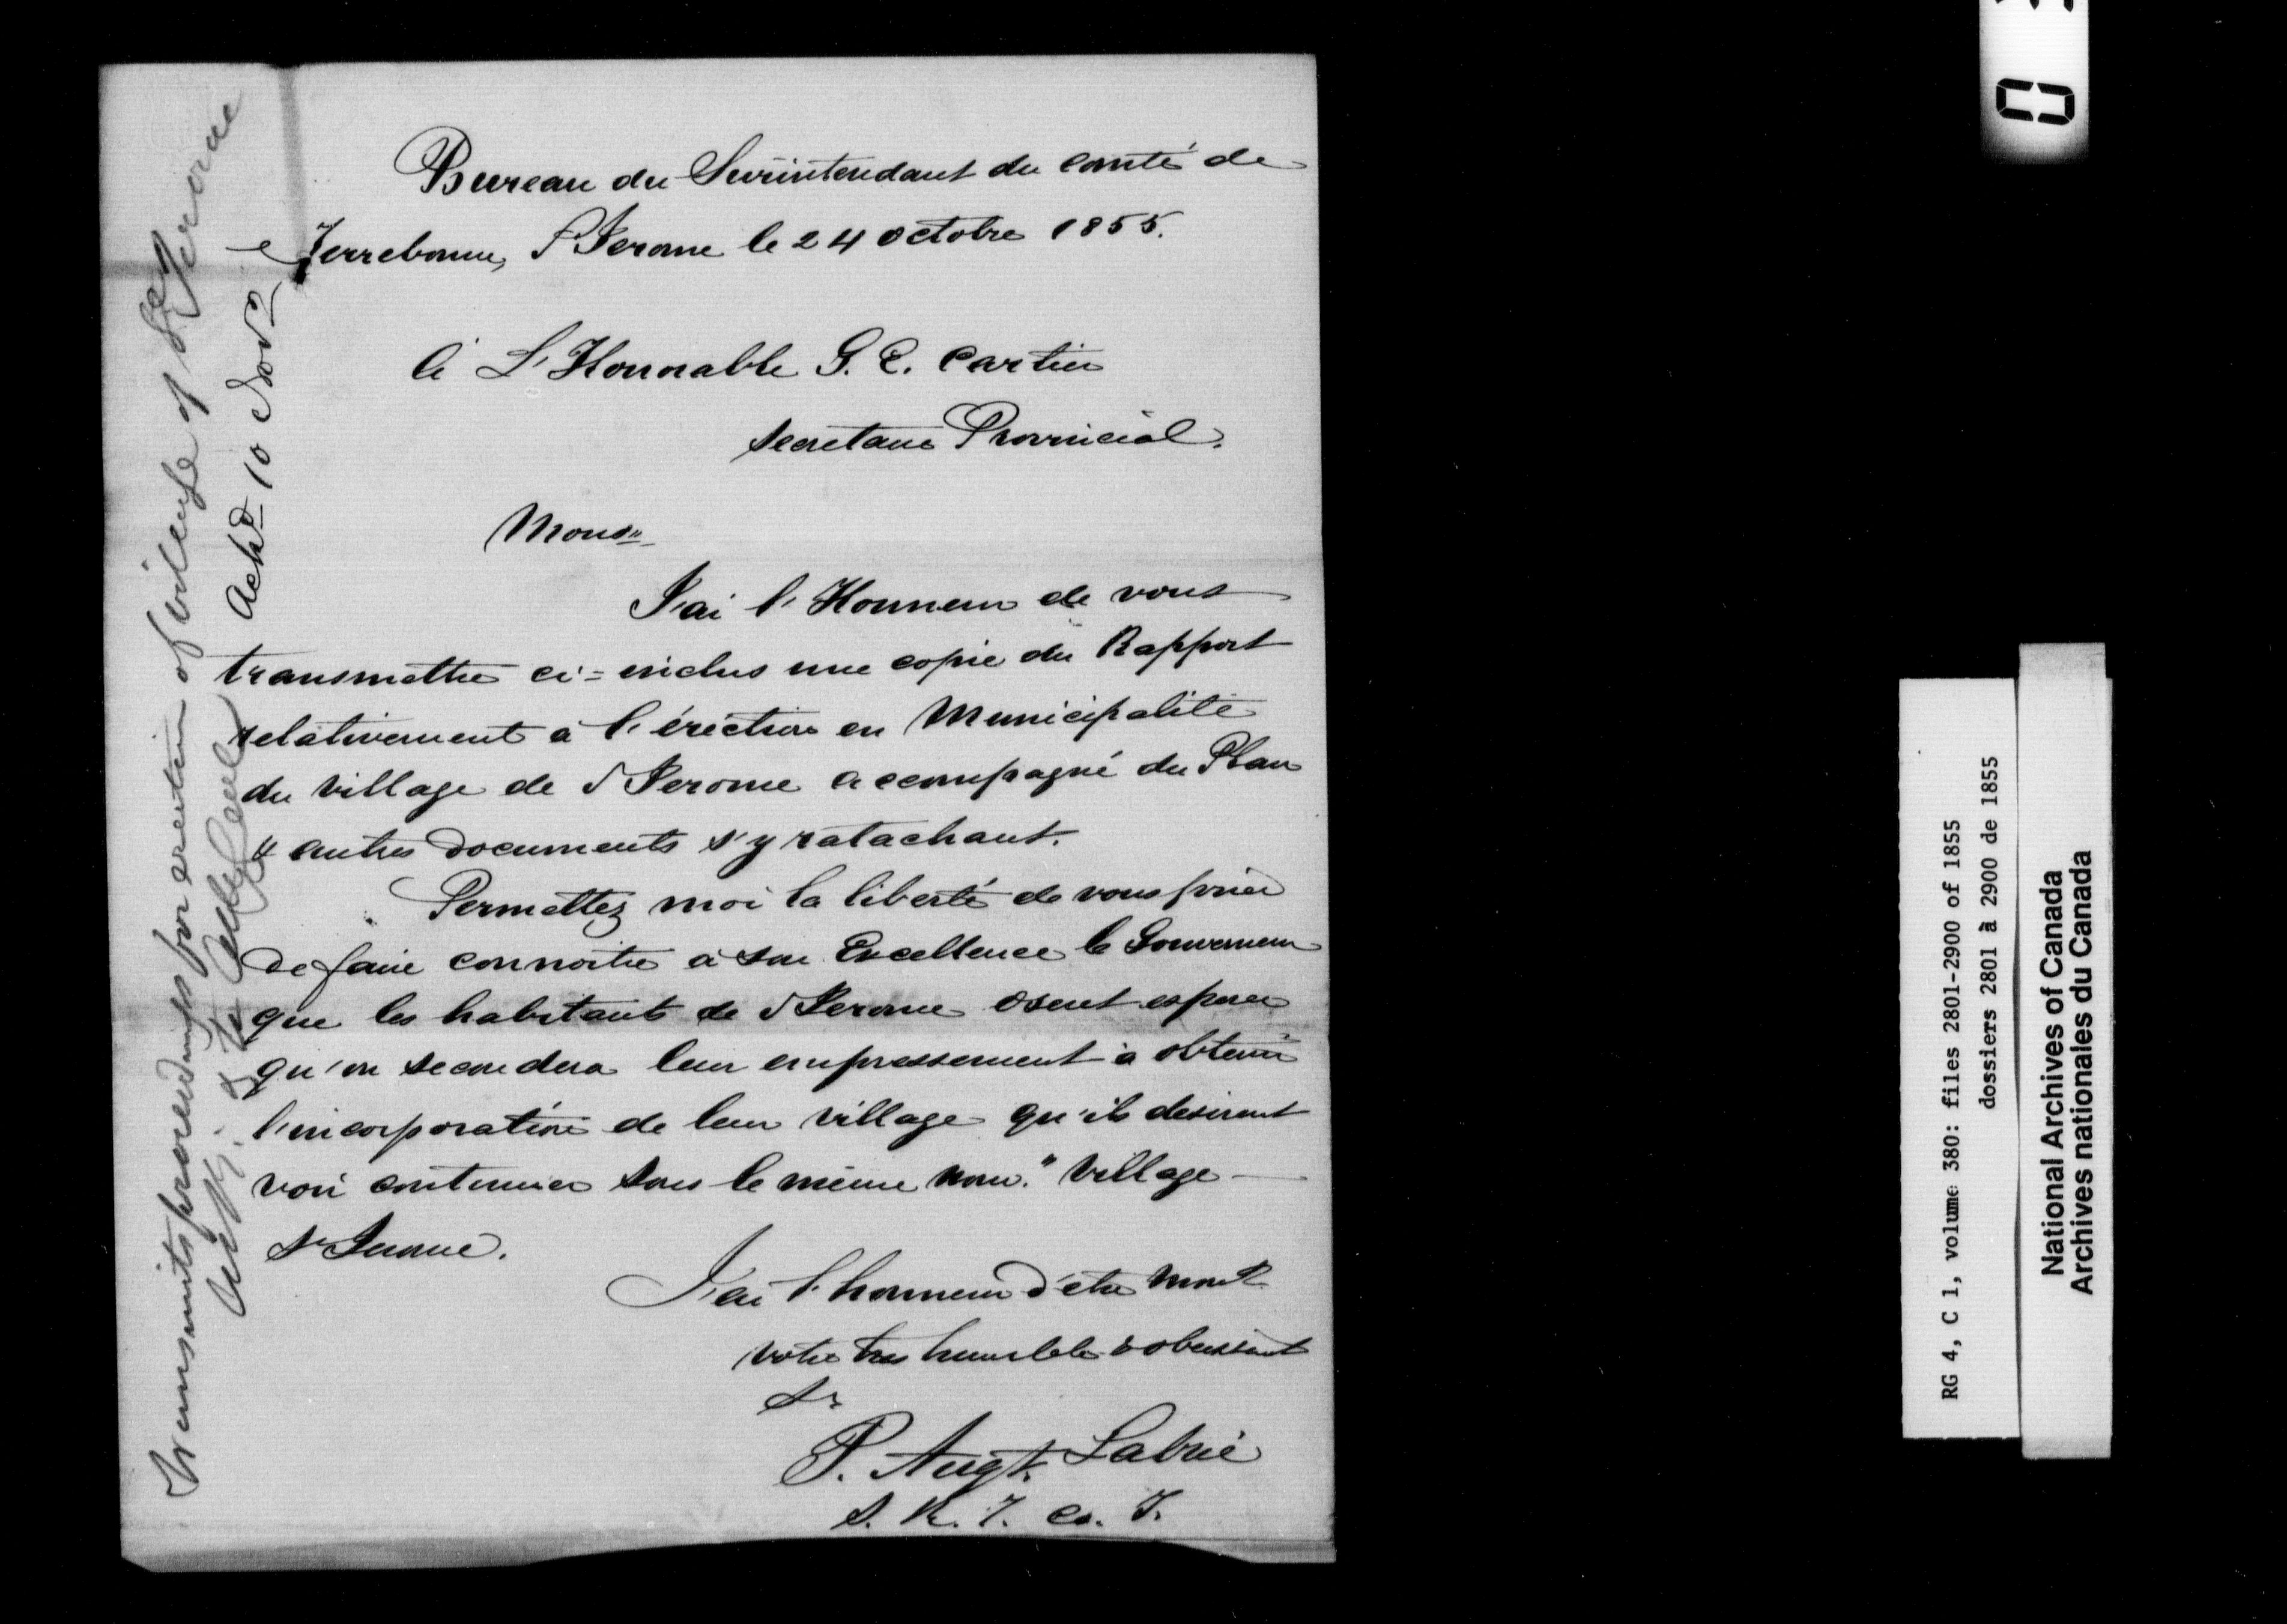 Bureau du Surintendant du comté de
Terrebonne, St Jerome le 24 octobre 1855.
à L'Honorable G. E. Cartier
secretaire Provincial.
Monsr
J'ai l'Honneur de vous
transmettre ci=inclus une copie du Rapport
relativement à l'éréction en Municipalité
du village de St Jerome accompagné du Plan
& autres Documents s'y ratachant.
Permettez moi la liberté de vous prier
de faire connoitre à son Excellence le Gouverneur
que les habitants de St Jerome osent esperer
qu'on secondera leur empressement à obtenir
l'incorporation de leur village qu'ils desirent
voir continuer sous le même nom. "Village
St Jerome.
J'ai l'honneur d'etre Monsr
Votre tres humble & obeissant
Sr
P. Augt. Labrie
S. R. T. Co. T.
Transmits proceedings for erection of village of St Jerome
Ackd 10 Novr
RG 4, C 1, volume 380: files 2801-2900 of 1855
dossiers 2801 à 2900 de 1855
National Archives of Canada
Archives nationales du Canada